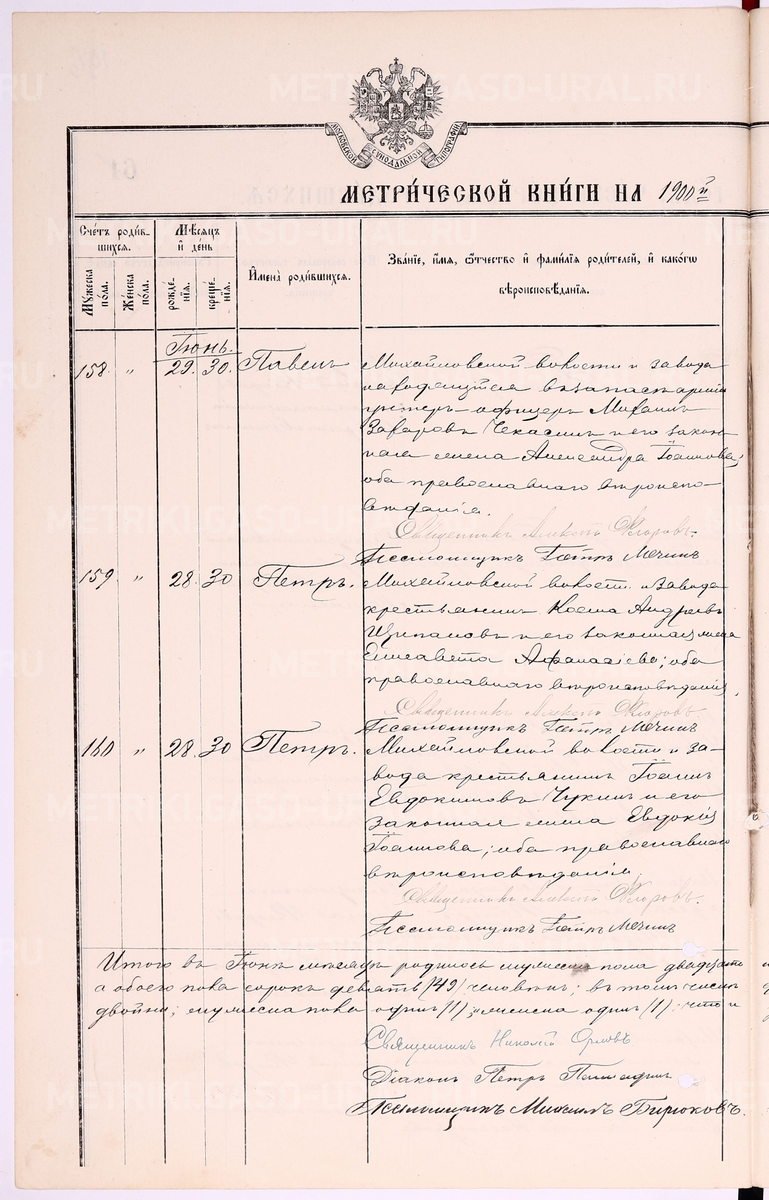 МОСКОВСКОЙ СѴНОДАЛЬНОЙ ТИПОГРАФІИ
МЕТРИЧЕСКОЙ КНИГИ НА 1900 й
Счетъ родив-
шихся.
Мѣсяцъ
и день
Имена родившихся.
Званіе, имя, отчество и фамилія родителей, и какогѡ
вѣроисповѣданія.
Мужеска
пола.
Женска
пола.
рожде-
нія.
креще-
нія.
Іюнь.
158. " 29. 30. Павелъ
Михайловской волости и завода
находящійся въ запасѣ арміи
унтеръ-офицеръ Михаилъ
Захаровъ Чекасинъ и его закон-
ная жена Александра Іоаннова;
оба православнаго вѣроиспо-
вѣданія.
Священникъ Алексѣй Ѳлоровъ.
Псаломщикъ Петръ Мечинъ
159 " 28. 30 Петръ.
Михайловской волости и завода
крестьянинъ Косма Андреевъ
Щипановъ и его законная жена
Елисавета Афанасіева; оба
православнаго вѣроисповѣданія.
Священникъ Алексѣй Ѳлоровъ.
Псаломщикъ Петръ Мечинъ
160 " 28. 30 Петръ.
Михайловской волости и за-
вода крестьянинъ Іоаннъ
Евдокимовъ Чукинъ и его
законная жена Евдокія
Іоаннова; оба православнаго
вѣроисповѣданія
Священникъ Алексѣй Ѳлоровъ.
Псаломщикъ Петръ Мечинъ
Итого въ Іюнѣ мѣсяцѣ родилось мужеска пола двадцать
а обоего пола сорокъ девять (49) человѣкъ; въ томъ числѣ
двойни; мужеска пола одинъ (1) и женска одинъ (1). что и
Священникъ Николай Орловъ
Діаконъ Петръ
Псаломщикъ Михаилъ Бирюковъ.
METRIKI.GASO-URAL.RU